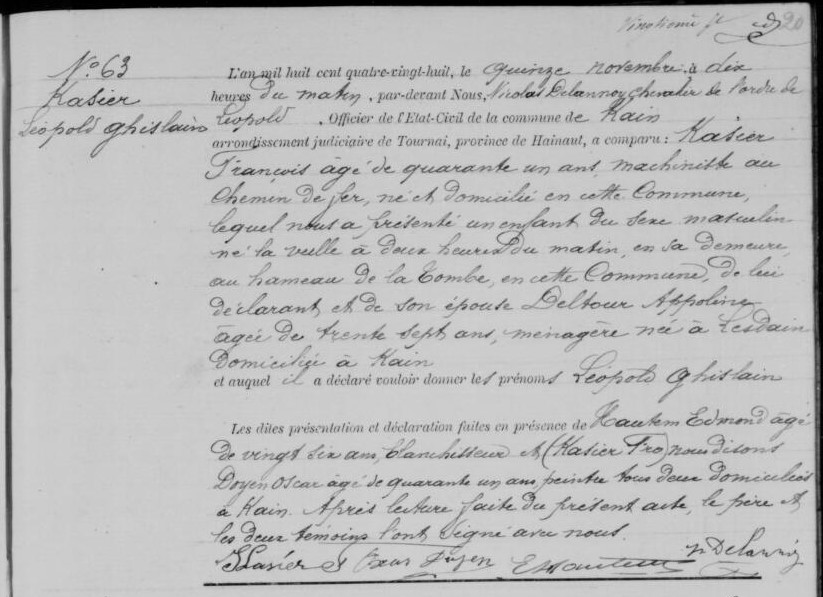 Vingtième ft 20
N° 63
Kasier
Léopold Ghislain
L'an mil huit cent quatre-vingt-huit, le quinze novembre à dix
heures du matin, par-devant Nous, Nicolas Delannoy Chevalier de l'ordre de
Léopold, Officier de l'Etat-Civil de la commune de Kain
arrondissement judiciaire de Tournai, province de Hainaut, a comparu : Kasier
François âgé de quarante un ans, machiniste au
Chemin de fer, né et domicilié en cette Commune,
lequel nous a présenté un enfant du sexe masculin
né la veille à deux heures du matin, en sa demeure,
au hameau de la Tombe, en cette Commune, de lui
déclarant et de son épouse Deltour Appoline
âgée de trente sept ans, ménagère née à Lesdain
Domiciliée à Kain
et auquel il a déclaré vouloir donner les prénoms Léopold Ghislain
Les dites présentation et déclaration faites en présence de Hautem Edmond âgé
de vingt six ans, blanchisseur et (Kasier Fro) nous disons
Doyen Oscar âgé de quarante un ans peintre tous deux domiciliés
à Kain. Après lecture faite du présent acte, le père et
les deux témoins l'ont signé avec nous.
Kasier Oscar Doyen E Hautem N Delannoy